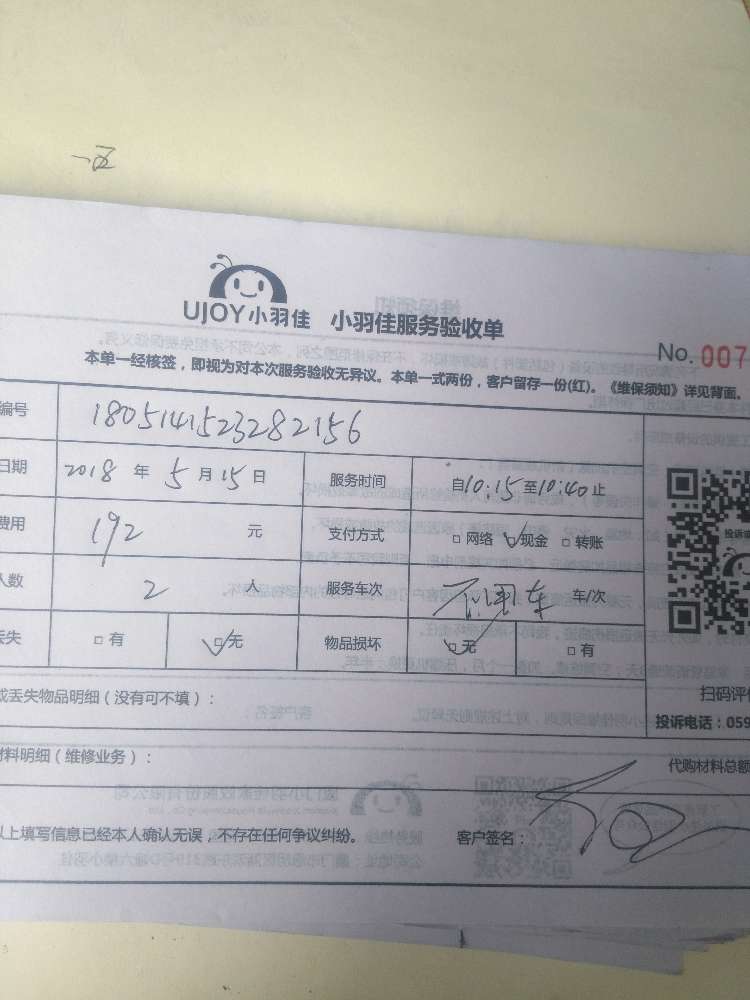 一五
UJOY小羽佳 小羽佳服务验收单
No. 007
本单一经核签，即视为对本次服务验收无异议。本单一式两份，客户留存一份(红)。《维保须知》详见背面。
编号 180514152328 2156
日期 2018 年 5 月 15 日 服务时间 自10:15至10:40止
费用 192 元 支付方式 □ 网络 □ 现金 □ 转账
人数 2 人 服务车次 不用车 车/次
丢失 □ 有 □ 无 物品损坏 □ 无 □ 有
投诉
扫码评价
或丢失物品明细（没有可不填）：
投诉电话：059
材料明细（维修业务）：
代购材料总额
以上填写信息已经本人确认无误，不存在任何争议纠纷。 客户签名：